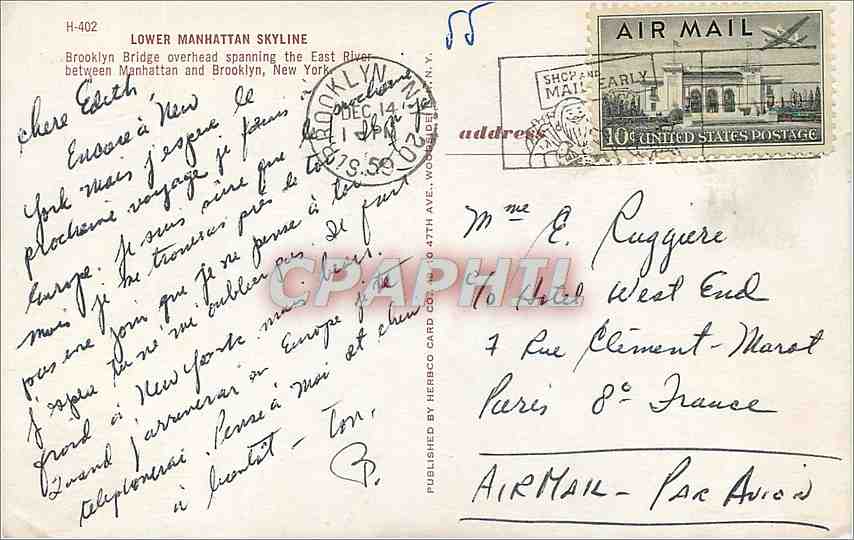 H-402
LOWER MANHATTAN SKYLINE
Brooklyn Bridge overhead spanning the East River
between Manhattan and Brooklyn, New York.
chere Edith,
Encore à New
York mais j'espère le prochaine
prochaine voyage je serais à
Europe. Je suis sûre que le
mois je me trouverais près de toi
pas une jour que je ne pense à toi
j'espère tu ne m'oublier pas. Il fait
froid à New York mais beau.
Quand j'arriverai en Europe je te
telephonerai. Pense à moi et chew
à bientôt - Ton.
B.
PUBLISHED BY HERBCO CARD CO. 47TH AVE., WOODSIDE, N.Y.
55
BROOKLYN N.Y. 20
DEC 14
PM
1959
SHOP AND
MAIL EARLY
AIR MAIL
10¢ UNITED STATES POSTAGE
address
Mme E. Ruggieri
c/o Hotel West End
7 Rue Clément-Marot
Paris 8e France
AIRMAIL - PAR AVION
CPAPHIL